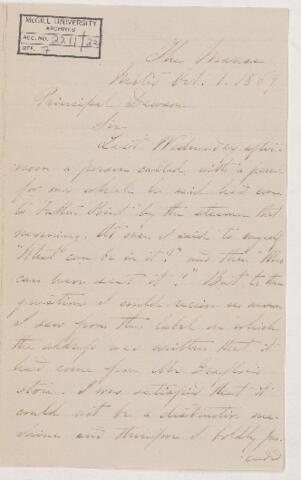 McGILL UNIVERSITY
ARCHIVES
ACC. NO. 2211/22
REF. 7
The Manse
Metis Oct. 1. 1869
Principal Dawson
Sir
Last Wednesday after-
noon a person called with a parcel
for me which he said had come
to Father Point by the steamer that
morning. At once I said to myself
"What can be in it?" and then "Who
can have sent it?" But to these
questions I could receive no answer
I saw from the label on which
the address was written that it
had come from Mr
store. I was satisfied that it
could not be a destructive ma-
chine and therefore I boldly pro-
ceeded